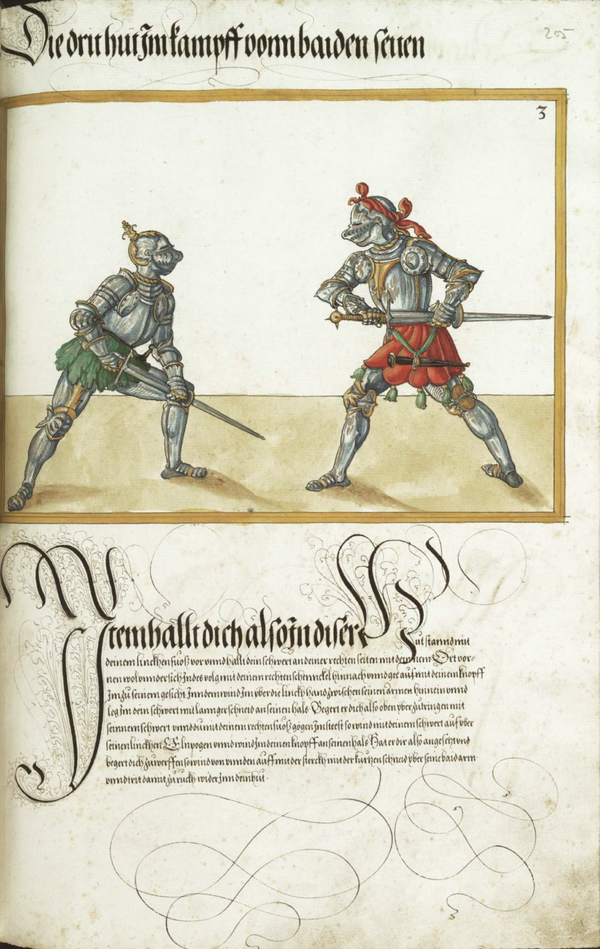 Die drit hut Jm kampff vonn baiden seiten
205
3
Jtem hallt dich also Jn diser Hut stannd mit
deinem linckhen fuoß vor vnnd hallt dein schwert an deiner rechten seiten mit dem Ort vor-
nen wol vnnder sich Jndes volg mit deinem rechten schennckel hinnach vnnd gee auf mit deinem knopff
Jm zu seinem gesicht Jnndem wind Jm vber die linckh hannd zwischen seinen armen hinnein vnnd
leg Jm dein schwert mit lannger schneid an seinen hals Begert er dich also oben vber zuringen mit
seinnem schwert vnnd du mit deinem rechten fuoß gögen Jm steest so wind mit deinem schwert auf vber
seinen linckhen Elnpogen vnnd wind Jm deinen knopff an seinen hals Hat er dir also angesetzt vnd
begert dich zuwerffen so wind von vnnden auff mit der sterckh mit der kurtzen schneid vber seine baid arm
vnnd trit damit zuruckh wider Jnn dein hut